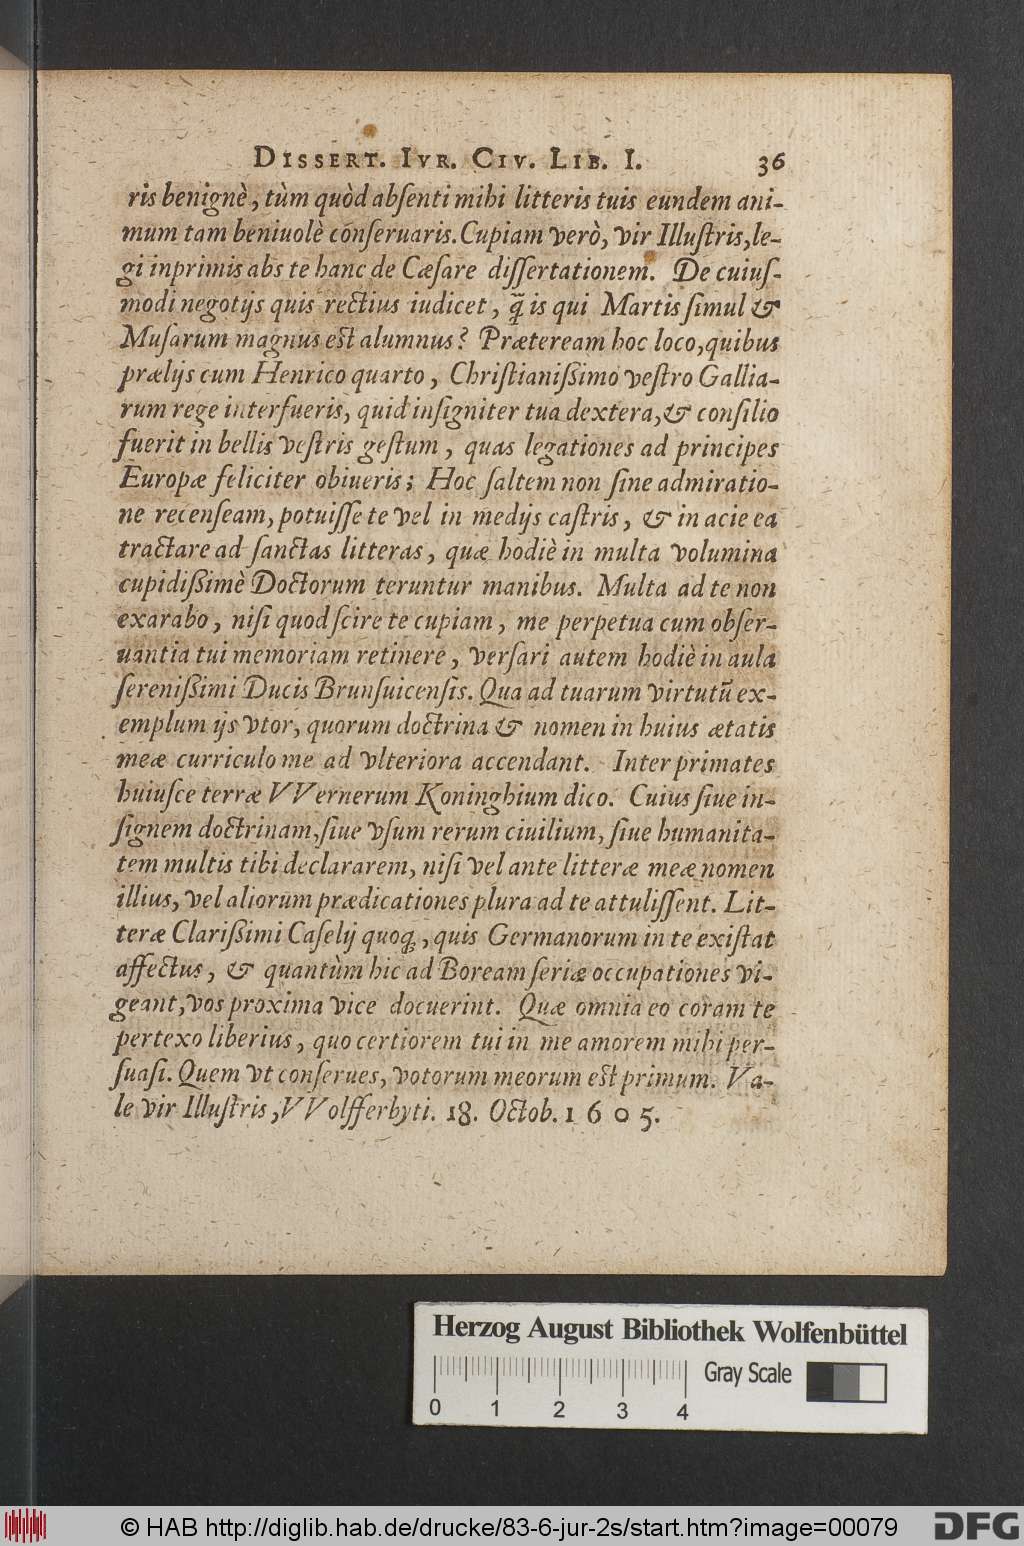 DISSERT. IVR. CIV. LIB. I. 36
ris benignè, tùm quòd absenti mihi litteris tuis eundem ani-
mum tam beniuolè conseruaris. Cupiam verò, vir Illustris, le-
gi inprimis abs te hanc de Cæsare dissertationem. De cuius-
modi negotijs quis rectius iudicet, q̃ is qui Martis simul &
Musarum magnus est alumnus? Præteream hoc loco, quibus
prælijs cum Henrico quarto, Christianißimo vestro Gallia-
rum rege interfueris, quid insigniter tua dextera, & consilio
fuerit in bellis vestris gestum, quas legationes ad principes
Europæ feliciter obiueris; Hoc saltem non sine admiratio-
ne recenseam, potuisse te vel in medijs castris, & in acie ea
tractare ad sanctas litteras, quæ hodiè in multa volumina
cupidißimè Doctorum teruntur manibus. Multa ad te non
exarabo, nisi quod scire te cupiam, me perpetua cum obser-
uantia tui memoriam retinere, versari autem hodiè in aula
serenißimi Ducis Brunsuicensis. Qua ad tuarum virtutũ ex-
emplum ijs vtor, quorum doctrina & nomen in huius ætatis
meæ curriculo me ad vlteriora accendant. Inter primates
huiusce terræ VVernerum Koninghium dico. Cuius siue in-
signem doctrinam, siue vsum rerum ciuilium, siue humanita-
tem multis tibi declararem, nisi vel ante litteræ meæ nomen
illius, vel aliorum prædicationes plura ad te attulissent. Lit-
teræ Clarißimi Caselij quoq;, quis Germanorum in te existat
affectus, & quantùm hic ad Boream seriæ occupationes vi-
geant, vos proxima vice docuerint. Quæ omnia eo coram te
pertexo liberius, quo certiorem tui in me amorem mihi per-
suasi. Quem vt conserues, votorum meorum est primum. Va-
le vir Illustris, VVolfferbyti. 18. Octob. 1605.
Herzog August Bibliothek Wolfenbüttel
Gray Scale
0 1 2 3 4
© HAB http://diglib.hab.de/drucke/83-6-jur-2s/start.htm?image=00079
DFG